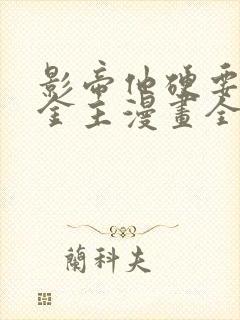 影帝他硬要
金主漫畫全
蘭科夫